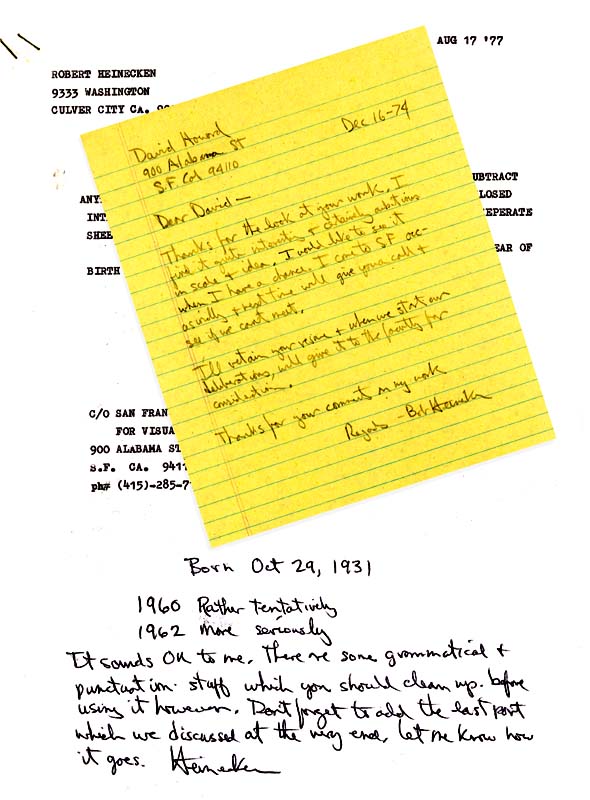 AUG 17 '77
ROBERT HEINECKEN
9333 WASHINGTON
CULVER CITY CA.
David Howard
900 Alabama St
S.F. Cal 94110
Dec 16-74
Dear David—
Thanks for the look at your work. I
find it quite interesting & certainly ambitious
in scale & idea. I would like to see it
when I have a chance. I come to S.F. occ-
asionally & next time will give you a call &
see if we can't meet.
I'll retain your resume & when we start our
deliberations, will give it to the faculty for
consideration.
Thanks for your comment on my work
Regards — Bob Heinecken
UBTRACT
ANY
LOSED
INT
EPERATE
SHEE
EAR OF
BIRTH
C/O SAN FRAN
FOR VISUA
900 ALABAMA ST
S.F. CA. 941
ph# (415)-285-7
Born Oct 29, 1931
1960 Rather tentatively
1962 more seriously
It sounds OK to me. There are some grammatical &
punctuation stuff which you should clean up before
using it however. Don't forget to add the last part
which we discussed at the very end. Let me know how
it goes. Heinecken